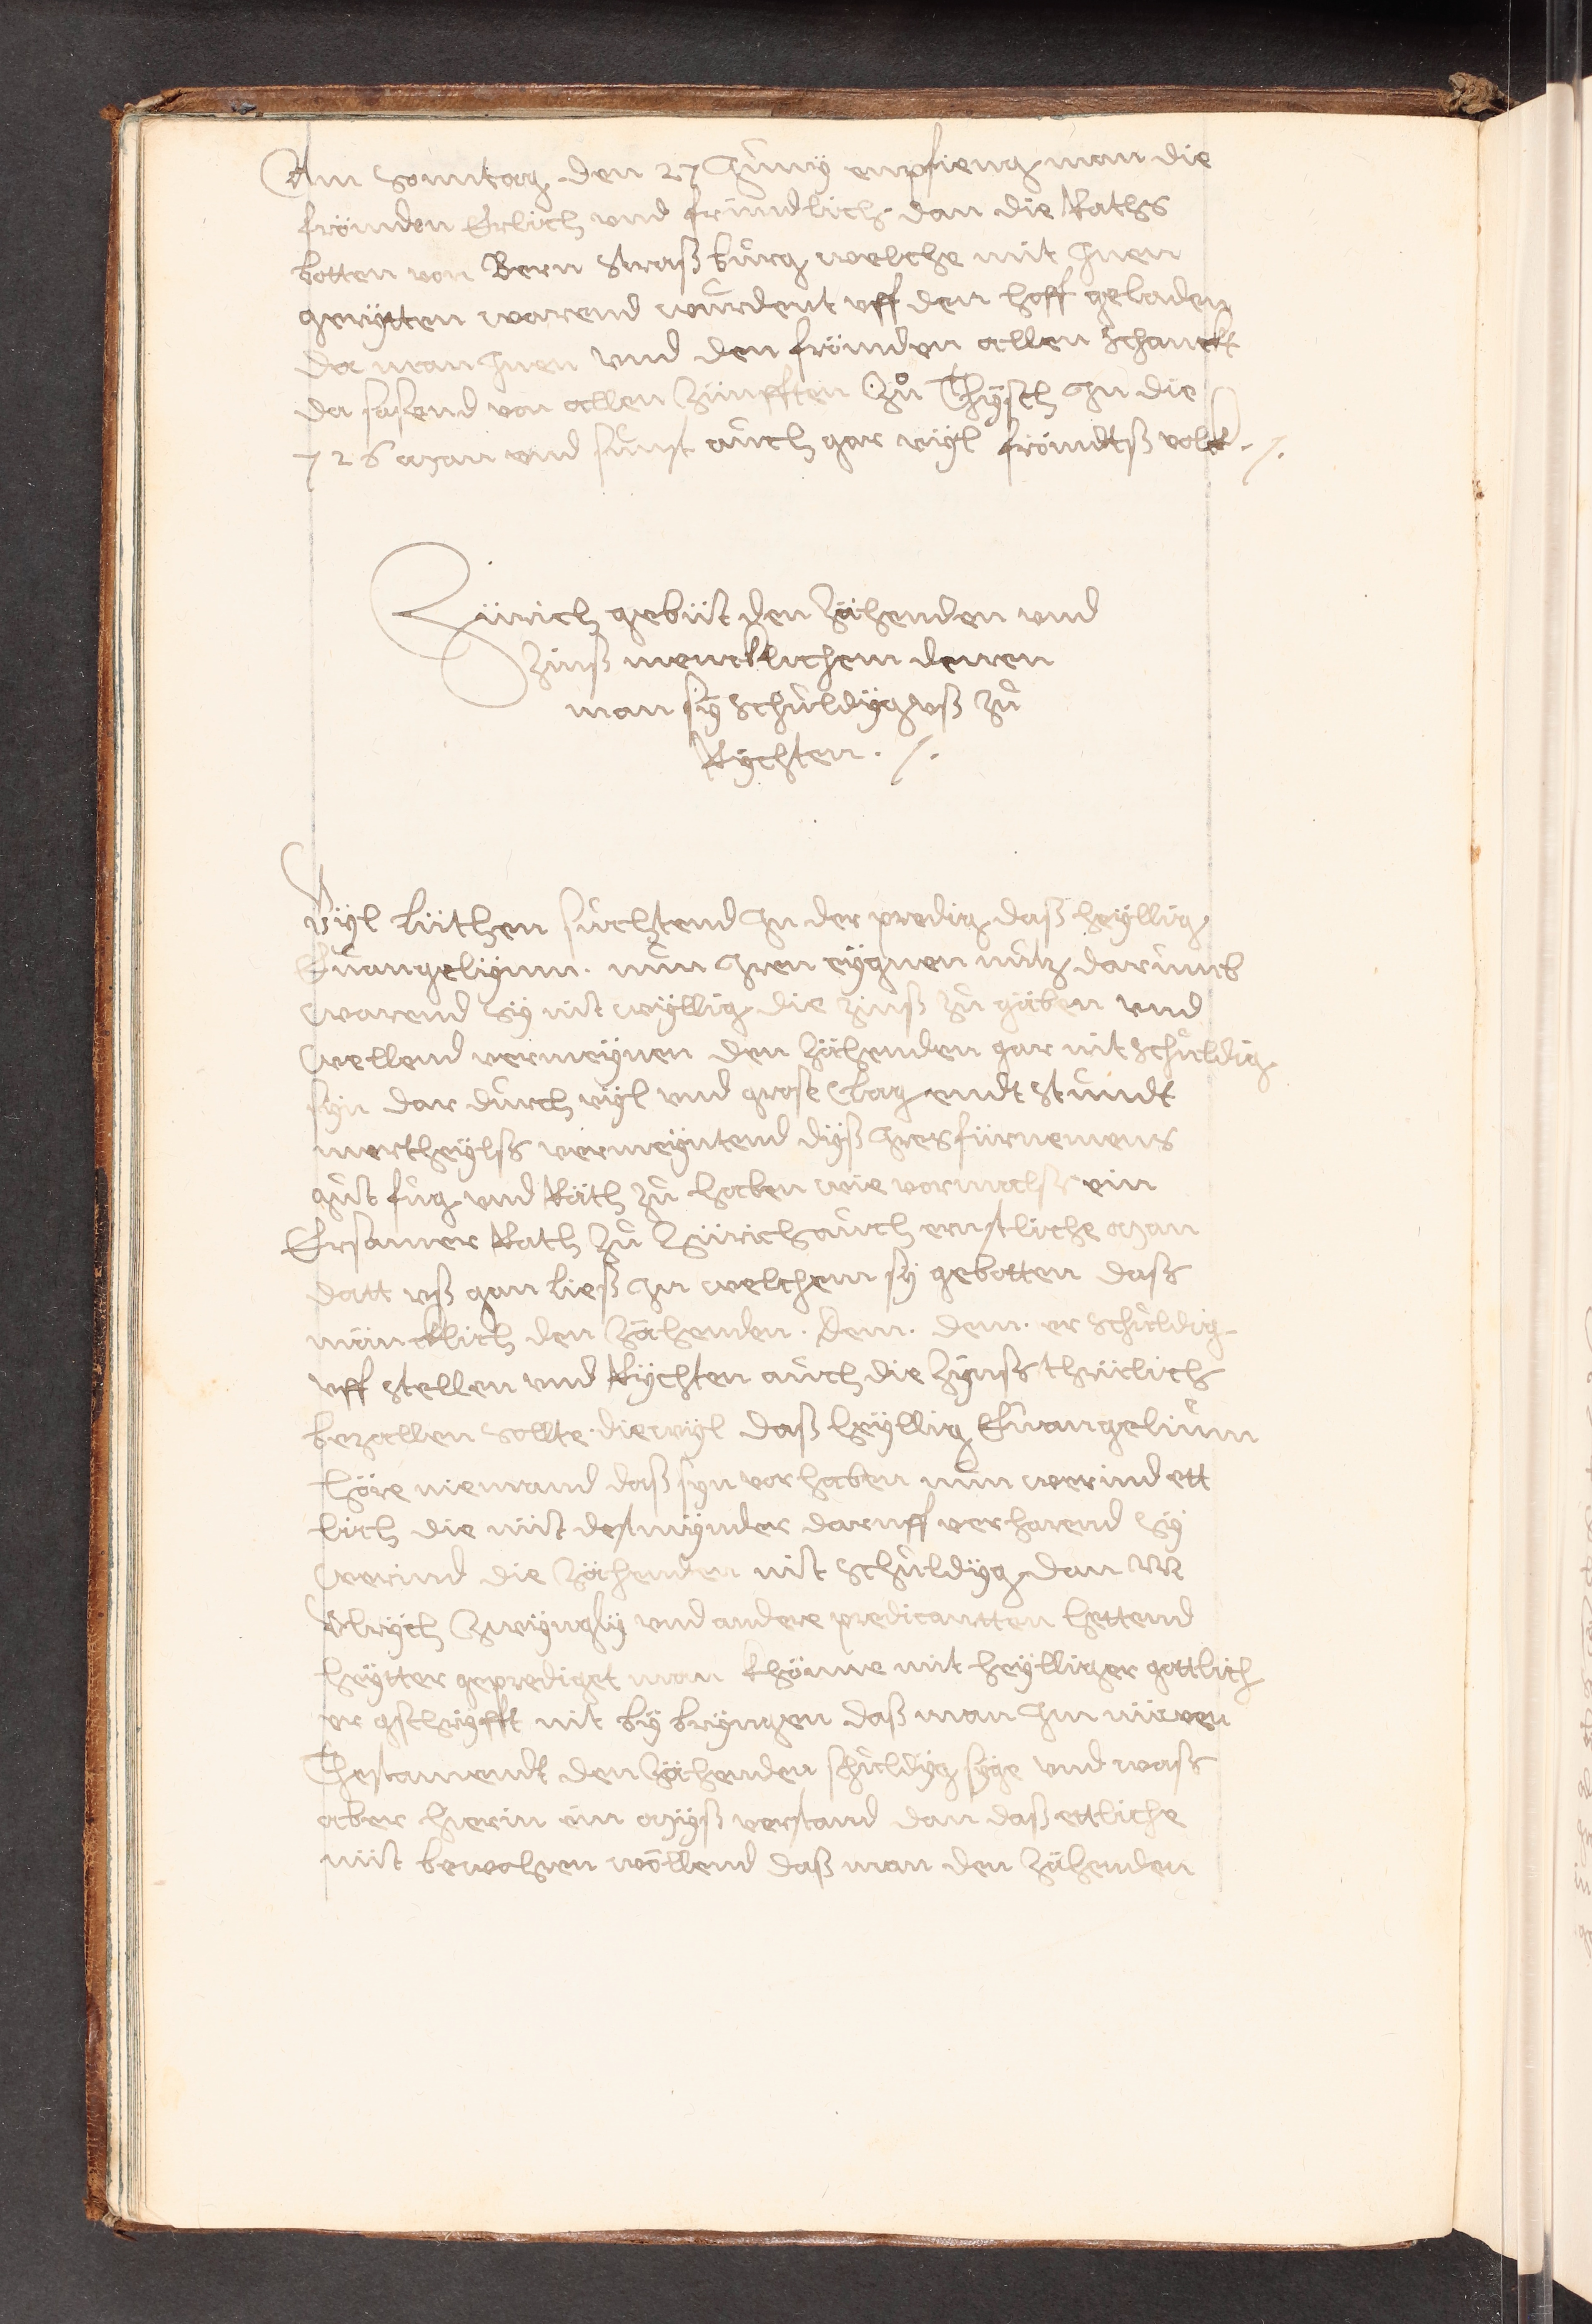 Am Sonntag den 27 Junÿ enpfieng man die
frömden Erlich vnd fründtlich dan die Raths
botten von Bern Straßburg welche mit Jnen
gerÿtten warend wurdent vff den hoff geladen
Da man Jnen vnd den frömden allen Schanckt
Da sasend von allen Zünfften Zů Thÿsch Jn die
726 Man vnd sunst auch gar vÿl frömdtß volck ./.
Zürich gebüt den Zächenden vnd
Zinß mencklichem denen
man sÿ Schuldÿg vß zu
Rÿchten . /.
Vÿl Lüthen suchtend Jn der predig daß heÿllig
Euangelÿum . nun Jren eÿgnen nutz darumb
warend sÿ nit wÿllig die zinß zu gäben vnd
wellend vermeÿnen den Zächenden gar nit Schuldig
sÿn dar durch vÿl vnd grose Clag endt Stundt
mertheÿlß vermeÿntend dÿß Jres fürnemens
gut fug vnd Räth zu haben wie vormalß ein
Ersamer Rath zu Zürich auch ernstliche Man
datt vß gan ließ Jn welchem sÿ gebotten daß
mäncklich den Zächenden . Dem . dem . er Schuldig
vff stellen vnd Rÿchten auch die Zÿnß thrülich
bezallen sollte . diewÿl daß heÿllig Euangelium
höre niemand daß sÿn vorhaben nun werind ett
lich die nüt destmÿnder daruff verharend sÿ
werind die Zächenden nit Schuldÿg dan M
Vlrÿch Zwÿnglÿ vnd andere predicantten hettend
heÿtter geprediget man khönne mit heÿlliger gottlich
er gschrÿfft nit bÿ bryngen daß man Jm nüwen
Thestamendt den Zächenden schuldÿg sÿge vnd waß
aber hierin ein Mÿß verstand dan daß ettliche
nüt bewahren wöllend daß man den Zächenden